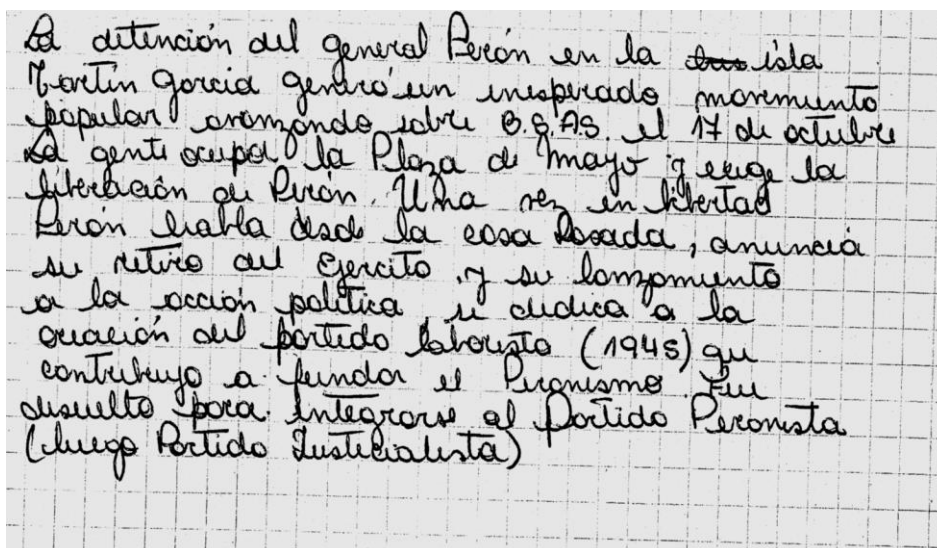 La detención del general Perón en la isla
Martín Garcia generó un inesperado movimiento
popular avanzando sobre B.S.AS. el 17 de octubre
La gente ocupa la Plaza de Mayo y exige la
liberación de Perón. Una vez en libertad
Perón habla desde la casa Rosada, anuncia
su retiro del Ejercito y su lanzamiento
a la acción política, se dedica a la
creación del partido laborista (1945) que
contribuyo a fundar el Peronismo. Fue
disuelto para integrarse al Partido Peronista
(luego Partido Justicialista)